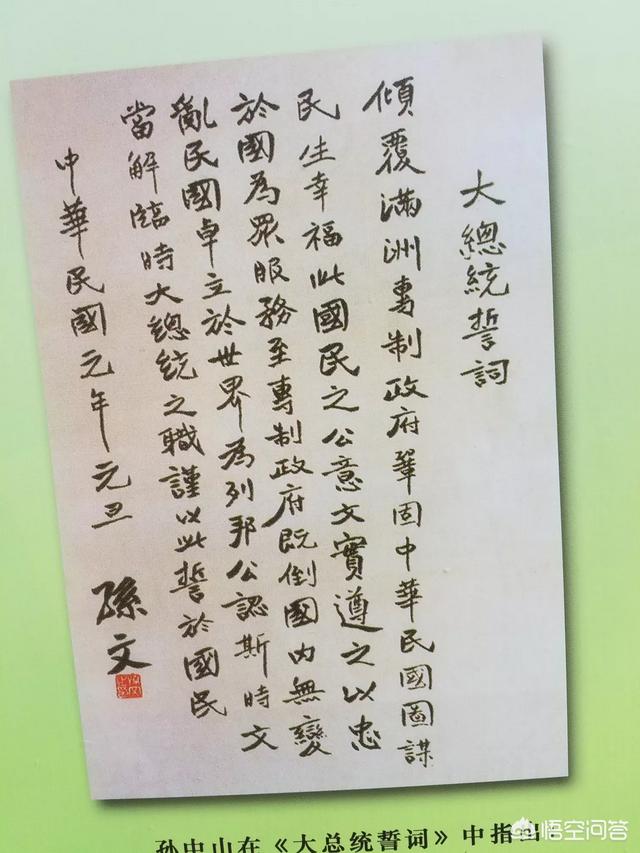 大總統誓詞
傾覆滿洲專制政府鞏固中華民國圖謀
民生幸福此國民之公意文實遵之以忠
於國為眾服務至專制政府既倒國內無變
亂民國卓立於世界為列邦公認斯時文
當解臨時大總統之職謹以此誓於國民
中華民國元年元旦
孫文
孙中山在《大总统誓词》中指出
悟空问答